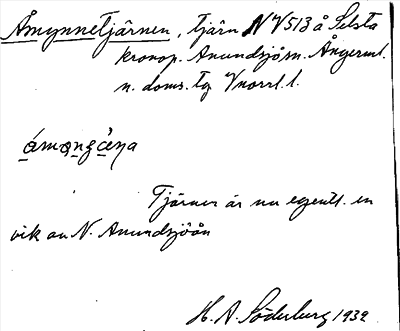 Åmynnetjärnen, tjärn NV513 å Selsta
kronop. Anundsjö sn. Ångerml.
n. doms. tg Vnorrl. l.
ámǫngæ̀ṇa
Tjärnen är nu egentl. en
vik av N. Anundsjöån
H. A. Söderberg 1932